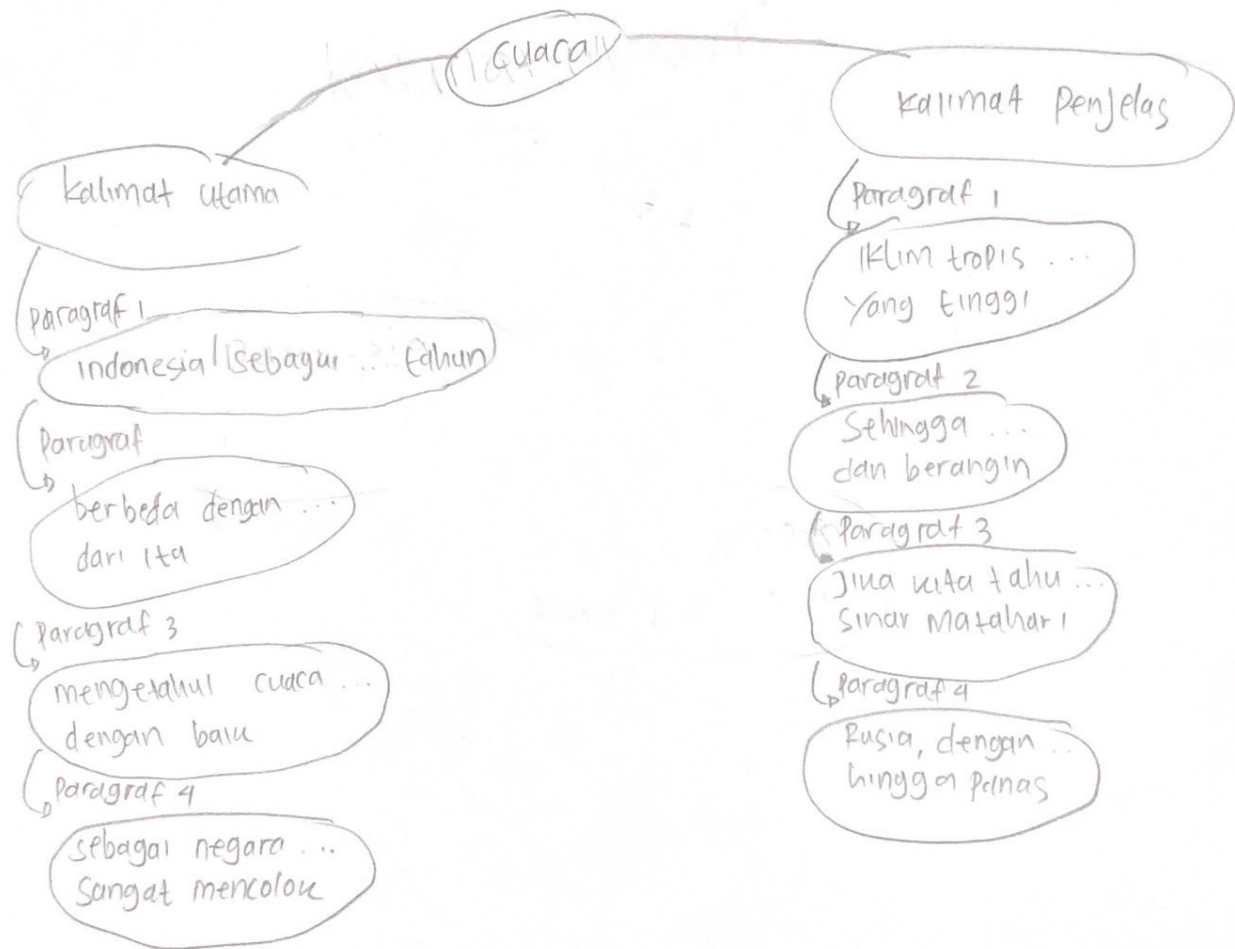 cuaca
kalimat utama
Paragraf 1
indonesia sebagai ... tahun
Paragraf
berbeda dengan ...
dari ita
Paragraf 3
mengetahui cuaca ...
dengan baik
Paragraf 4
sebagai negara ...
sangat mencolok
kalimat Penjelas
Paragraf 1
Iklim tropis ...
yang tinggi
Paragraf 2
Sehingga ...
dan berangin
Paragraf 3
Jika kita tahu ...
sinar matahari
Paragraf 4
Rusia, dengan ..
hingga panas